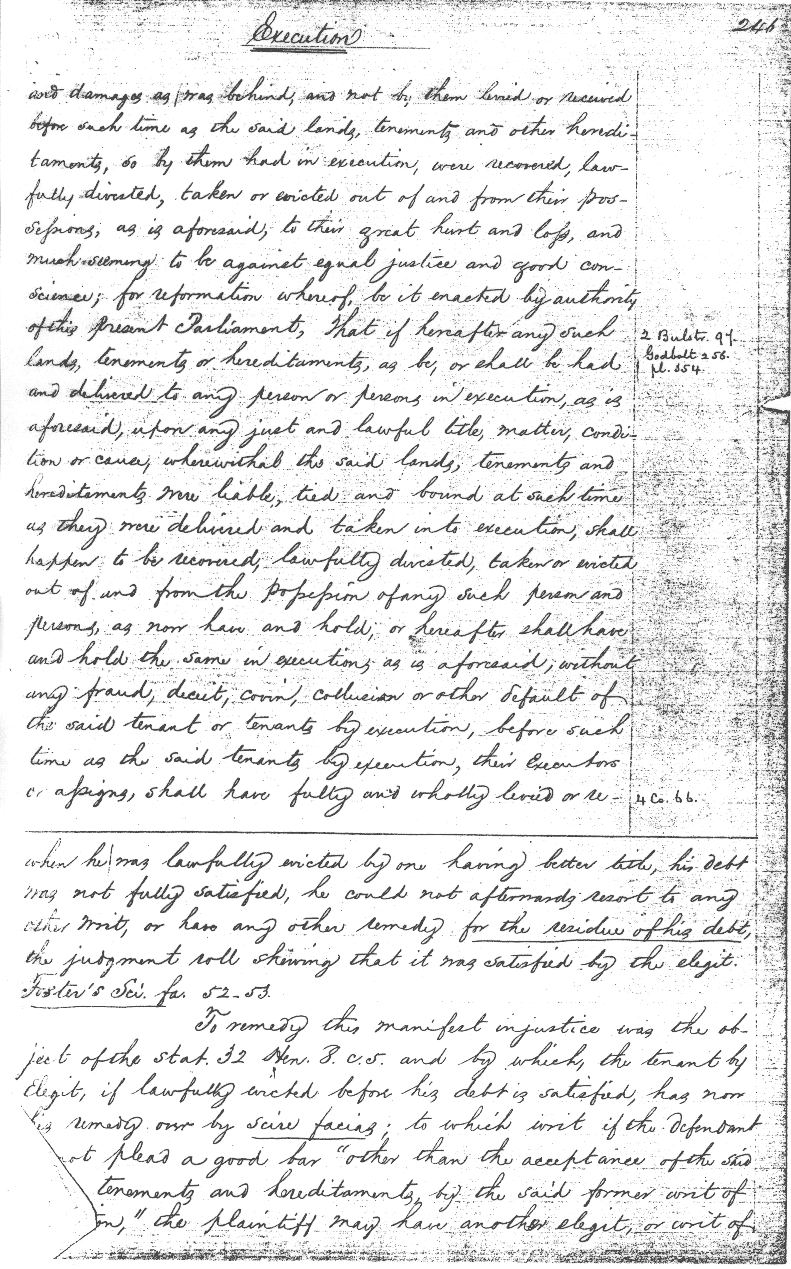 Execution
246
and damages as was behind, and not by them levied or received
before such time as the said lands, tenements and other heredi-
taments, so by them had in execution, were recovered, law-
fully divested, taken or evicted out of and from their pos-
sessions, as is aforesaid, to their great hurt and loss, and
much seeming to be against equal justice and good con-
science; for reformation whereof, be it enacted by authority
of this present Parliament, That if hereafter any such
lands, tenements or hereditaments, as be, or shall be had
and delivered to any person or persons in execution, as is
aforesaid, upon any just and lawful title, matter, condi-
tion or cause, wherewithal the said lands, tenements and
hereditaments were liable, tied and bound at such time
as they were delivered and taken into execution, shall
happen to be recovered, lawfully divested, taken or evicted
out of and from the possession of any such person and
persons, as now have and hold, or hereafter shall have
and hold the same in execution, as is aforesaid, without
any fraud, deceit, covin, collusion or other default of
the said tenant or tenants by execution, before such
time as the said tenants by execution, their Executors
or assigns, shall have fully and wholly levied or re-
2 Bulstr. 97.
Godbolt 256.
pl. 354.
4 Co. 66.
when he was lawfully evicted by one having better title, his debt
was not fully satisfied, he could not afterwards resort to any
other writ, or have any other remedy for the residue of his debt,
the judgment roll shewing that it was satisfied by the elegit.
Foster's Sci. fa. 52-53.
To remedy this manifest injustice was the ob-
ject of the stat. 32 Hen. 8. c. 5. and by which, the tenant by
Elegit, if lawfully evicted before his debt is satisfied, has now
his remedy over by scire facias; to which writ if the defendant
ot plead a good bar "other than the acceptance of the said
tenements and hereditaments, by the said former writ of
on," the plaintiff may have another elegit, or writ of